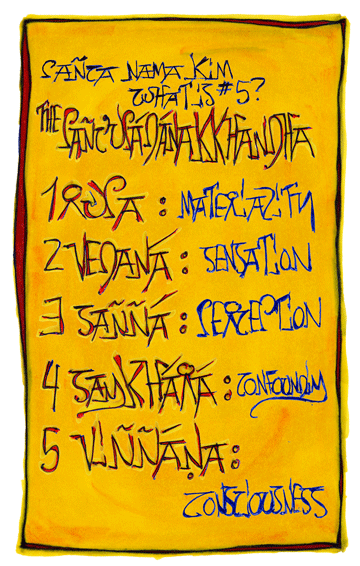 PAÑCA NAMA KIM
WHAT IS #5?
THE PAÑC'UPADÁNAKKHANDHA
1 RUPA : MATERIALITY
2 VEDANÁ : SENSATION
3 SAÑÑÁ : PERCEPTION
4 SAṆKHÁRÁ :
5 VIÑÑÁṆA :
CONSCIOUSNESS